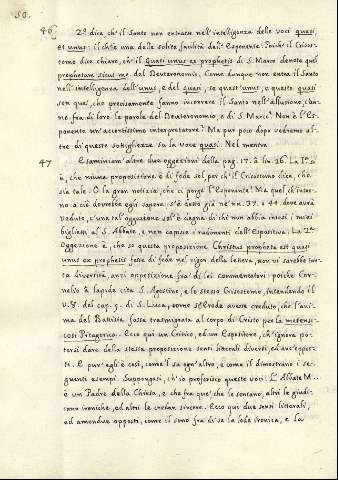 50.
46 2.º dice, ch'il Santo non entrasse nell'intelligenza delle voci quasi,
et unus: il ch'è una delle solite facilità dell'Esponente. Poichè il Crisos-
tomo dice chiaro, ch'il Quasi unus ex prophetis di S. Marco denota quel
prophetam sicut me del Deuteronomio. Come dunque non entra il Santo
nell'intelligenza dell'unus, e del quasi, se quest'unus, e questo quasi
son que', che precisamente fanno incorrere il Santo nell'allusione,
fra di loro le parole del Deuteronomio, e di S. Marco? Non è l'Es-
ponente un'accortissimo interpretatore? Ma pur poco dopo vedremo al-
tre di queste sottigliezze su la voce quasi. Nel mentre
47 Esaminiam'altre due oggezioni della pag. 17. à lin. 26. La 1.ª
è, che niuna proposizione è di fede sol per ch'il Crisostomo dica, che
sia tale. O la gran notizia, che ci porge l'Esponente! Ma quel, ch'inter-
no a ciò dovrebbe egli sapere, s'è detto già ne' nn. 37. e 44 dove avrà
veduto, c'una tal'oggezione sol'è degna di chi non abbia intesi i miei
biglietti al S. Abbate, e non capisca i rudimenti dell'Espositiva. La 2.ª
Oggezione è, che se questa proposizione Christus propheta est quasi
unus ex prophetis fosse di fede nel rigor della lettera, non vi sarebbe tan-
ta diversità, anzi opposizione fra' di lei commentatori: poichè Cor-
nelio à lapide cita S. Agostino, e lo stesso Crisostomo, intendendo il
v. 8. del cap. 9. di S. Luca, come s'Erode avesse creduto, che l'ani-
ma del Battista fosse trasmigrata al corpo di Cristo per la metensi-
cosi Pitagorica. Ecco qui un Critico, ed un Espositore, ch'ignora po-
tersi dare della stessa proposizione sensi litterali diversi, ed anc'oppos-
ti. E pur'egli è così, come'l sa ogn'altro, e come il dimostrano i se-
guenti esempi. Suppongasi, ch'io proferisca queste voci: L'Abbate M...
è un Padre della Chiesa, e che fra que', che le sentano, altri le giudi-
cano ironiche, ed altri le credan sincere. Ecco qui due sensi litterali,
ed amendue opposti, come il sono fra di se la lode ironica, e la